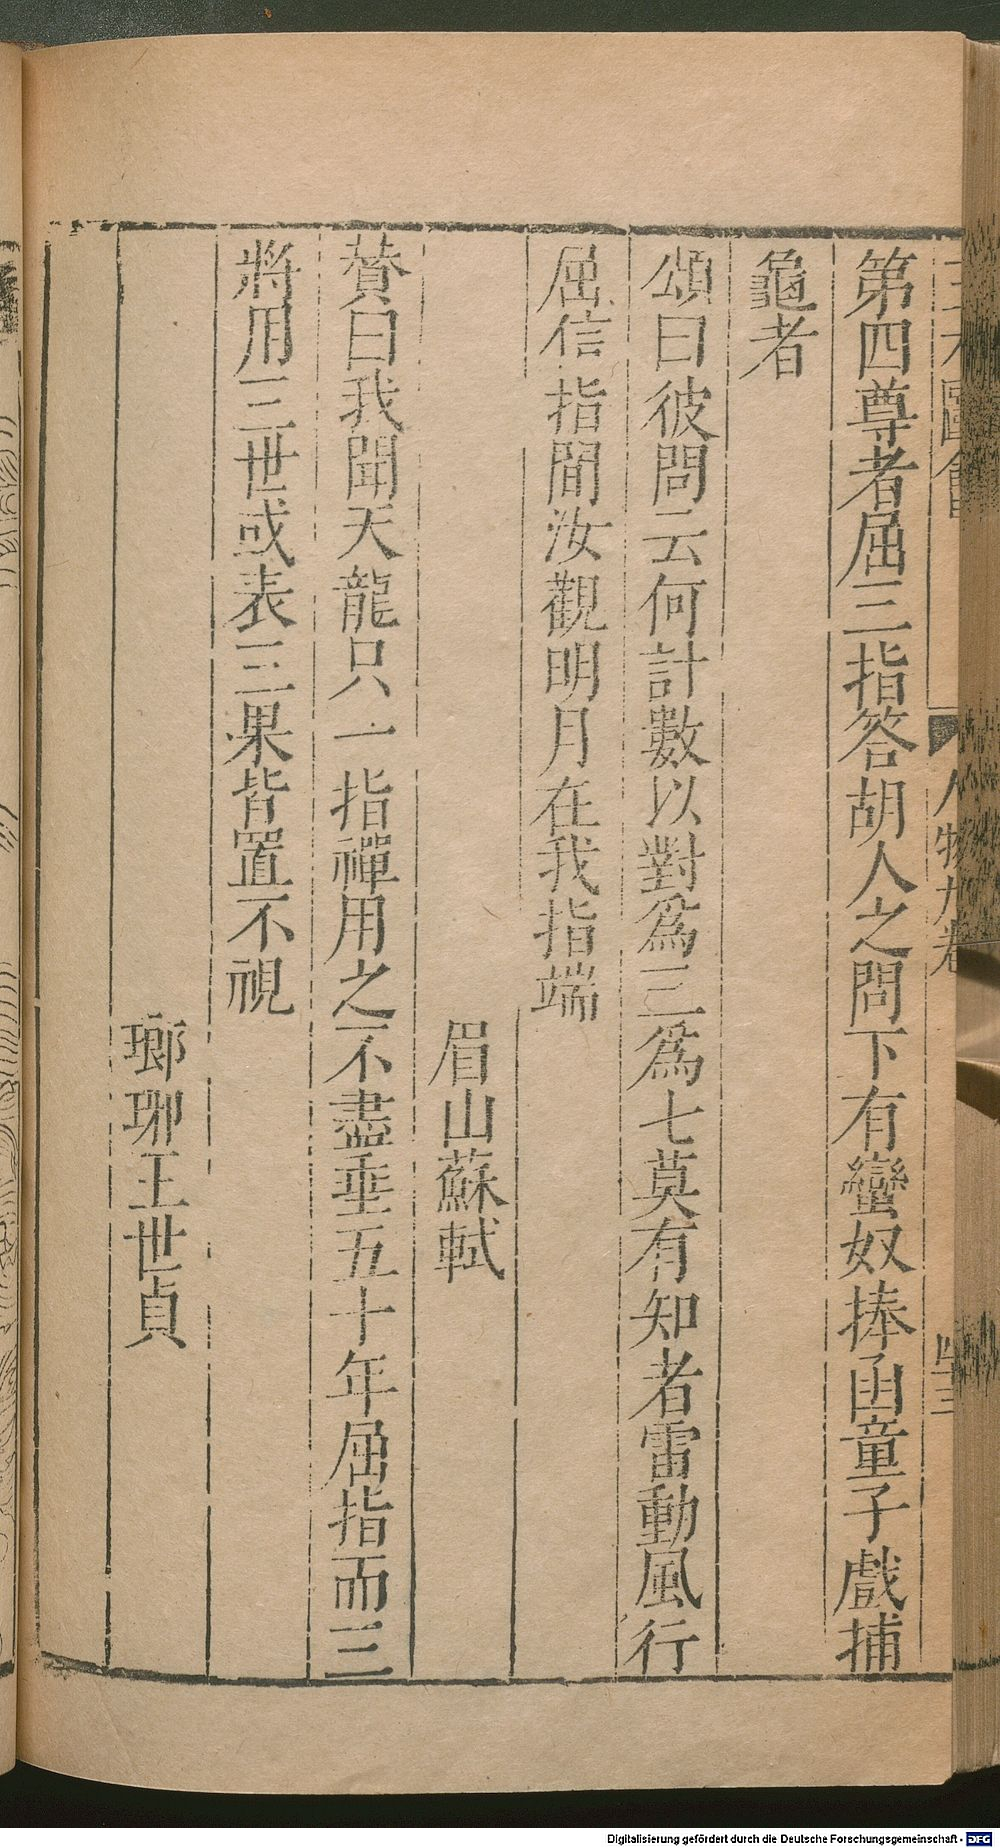 三才圖會 人物九卷 四十三
第四尊者屈三指答胡人之問下有蠻奴捧函童子戲捕
龜者
頌曰彼問云何計數以對爲三爲七莫有知者雷動風行
屈信指間汝觀明月在我指端
眉山蘇軾
贊曰我聞天龍只一指禪用之不盡垂五十年屈指而三
將用三世或表三果皆置不視
瑯琊王世貞
Digitalisierung gefördert durch die Deutsche Forschungsgemeinschaft - DFG